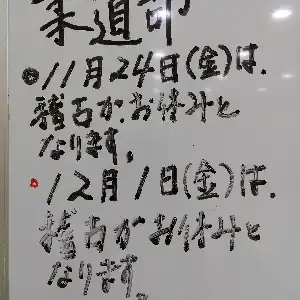 柔道部
◎11月24日(金)は、
稽古が、お休みと
なります。
12月1日(金)は、
稽古がお休みと
なります。